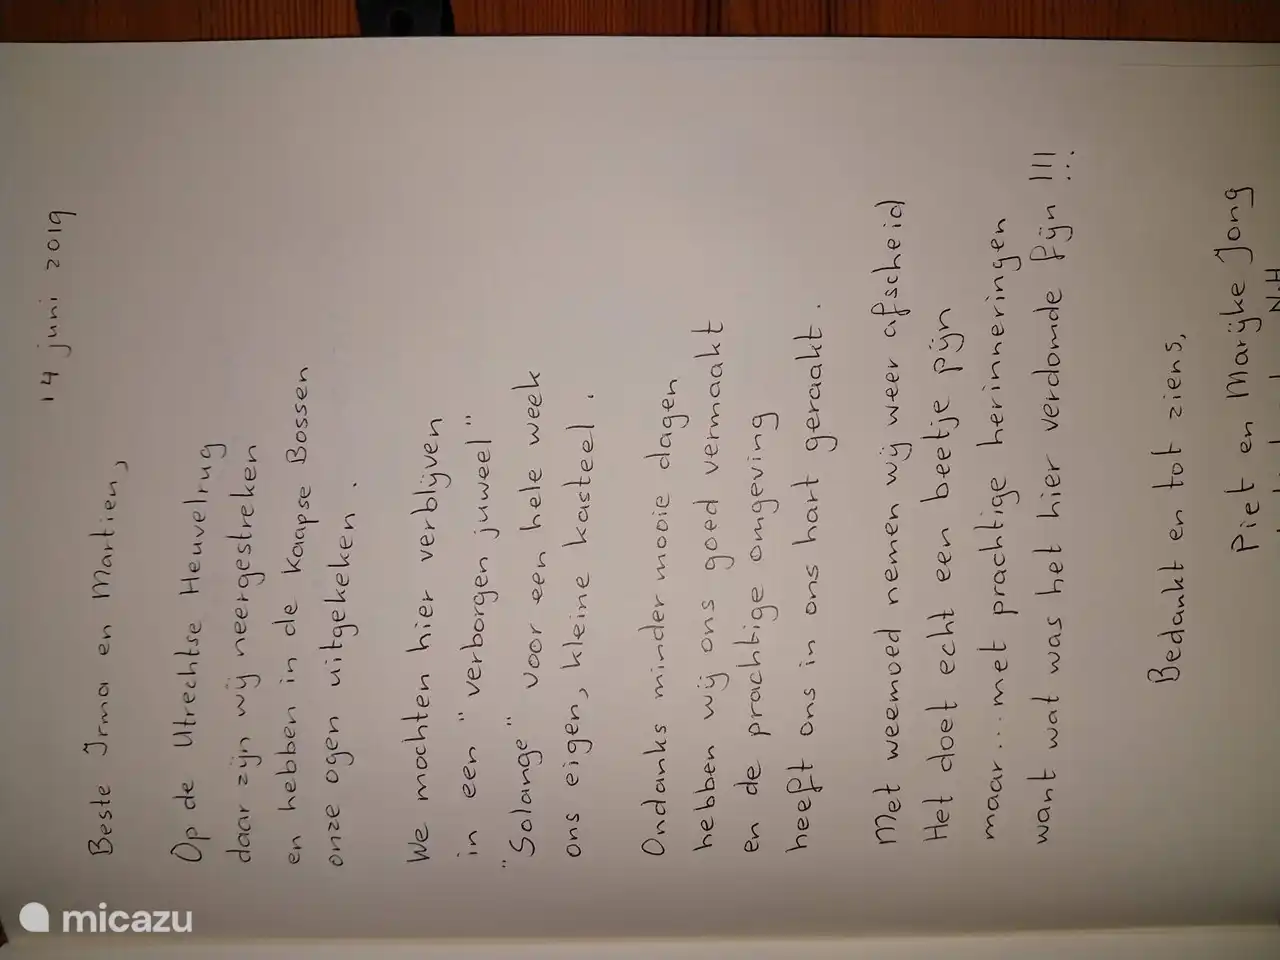 14 juni 2019
Beste Irma en Martien,
Op de Utrechtse Heuvelrug
daar zijn wij neergestreken
en hebben in de Kaapse Bossen
onze ogen uitgekeken.
We mochten hier verblijven
in een "verborgen juweel"
"Solange" voor een hele week
ons eigen, kleine kasteel.
Ondanks minder mooie dagen
hebben wij ons goed vermaakt
en de prachtige omgeving
heeft ons in ons hart geraakt.
Met weemoed nemen wij weer afscheid
Het doet echt een beetje pijn
maar... met prachtige herinneringen
want wat was het hier verdomde fijn!!!...
Bedankt en tot ziens,
Piet en Marijke Jong
N.H
micazu